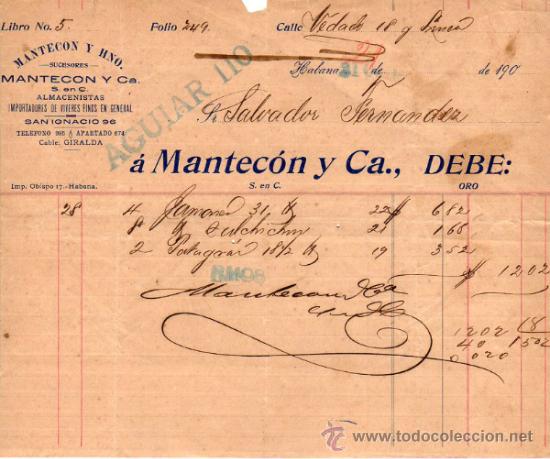 Libro No. 5. Folio 249. Calle Vedado 18 y Linea
MANTECON Y HNO.
SUCESORES
MANTECON Y Ca.
S. en C.
ALMACENISTAS
IMPORTADORES DE VIVERES FINOS EN GENERAL
SAN IGNACIO 96
TELEFONO 985 Á APARTADO 674
Cable: GIRALDA
AGUIAR 110
Habana de de 190
Sr Salvador Fernandez
á Mantecón y Ca., DEBE:
Imp. Obispo 17.-Habana. S. en C. ORO
28 4 Jamones 31 22 $ 6 82
8 21 1 68
2 18 1/2 19 3 52
$ 12 02
Mantecon y Ca
12 02 18
40 15 02
0 020
www.todocoleccion.net